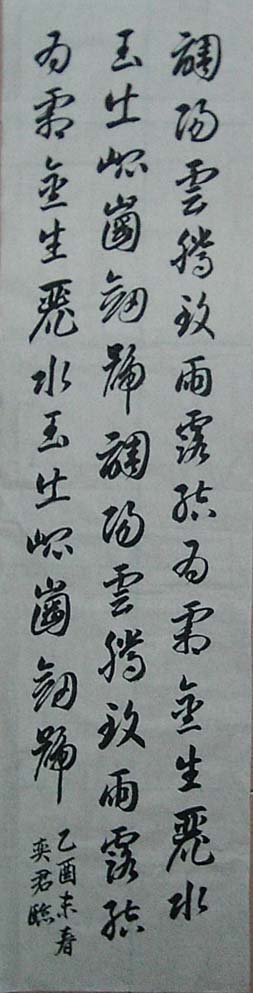 調陽雲騰致雨露結為霜金生麗水
玉出崐崗劍號調陽雲騰致雨露結
為霜金生麗水玉出崐崗劍號
乙酉末春
奕君臨